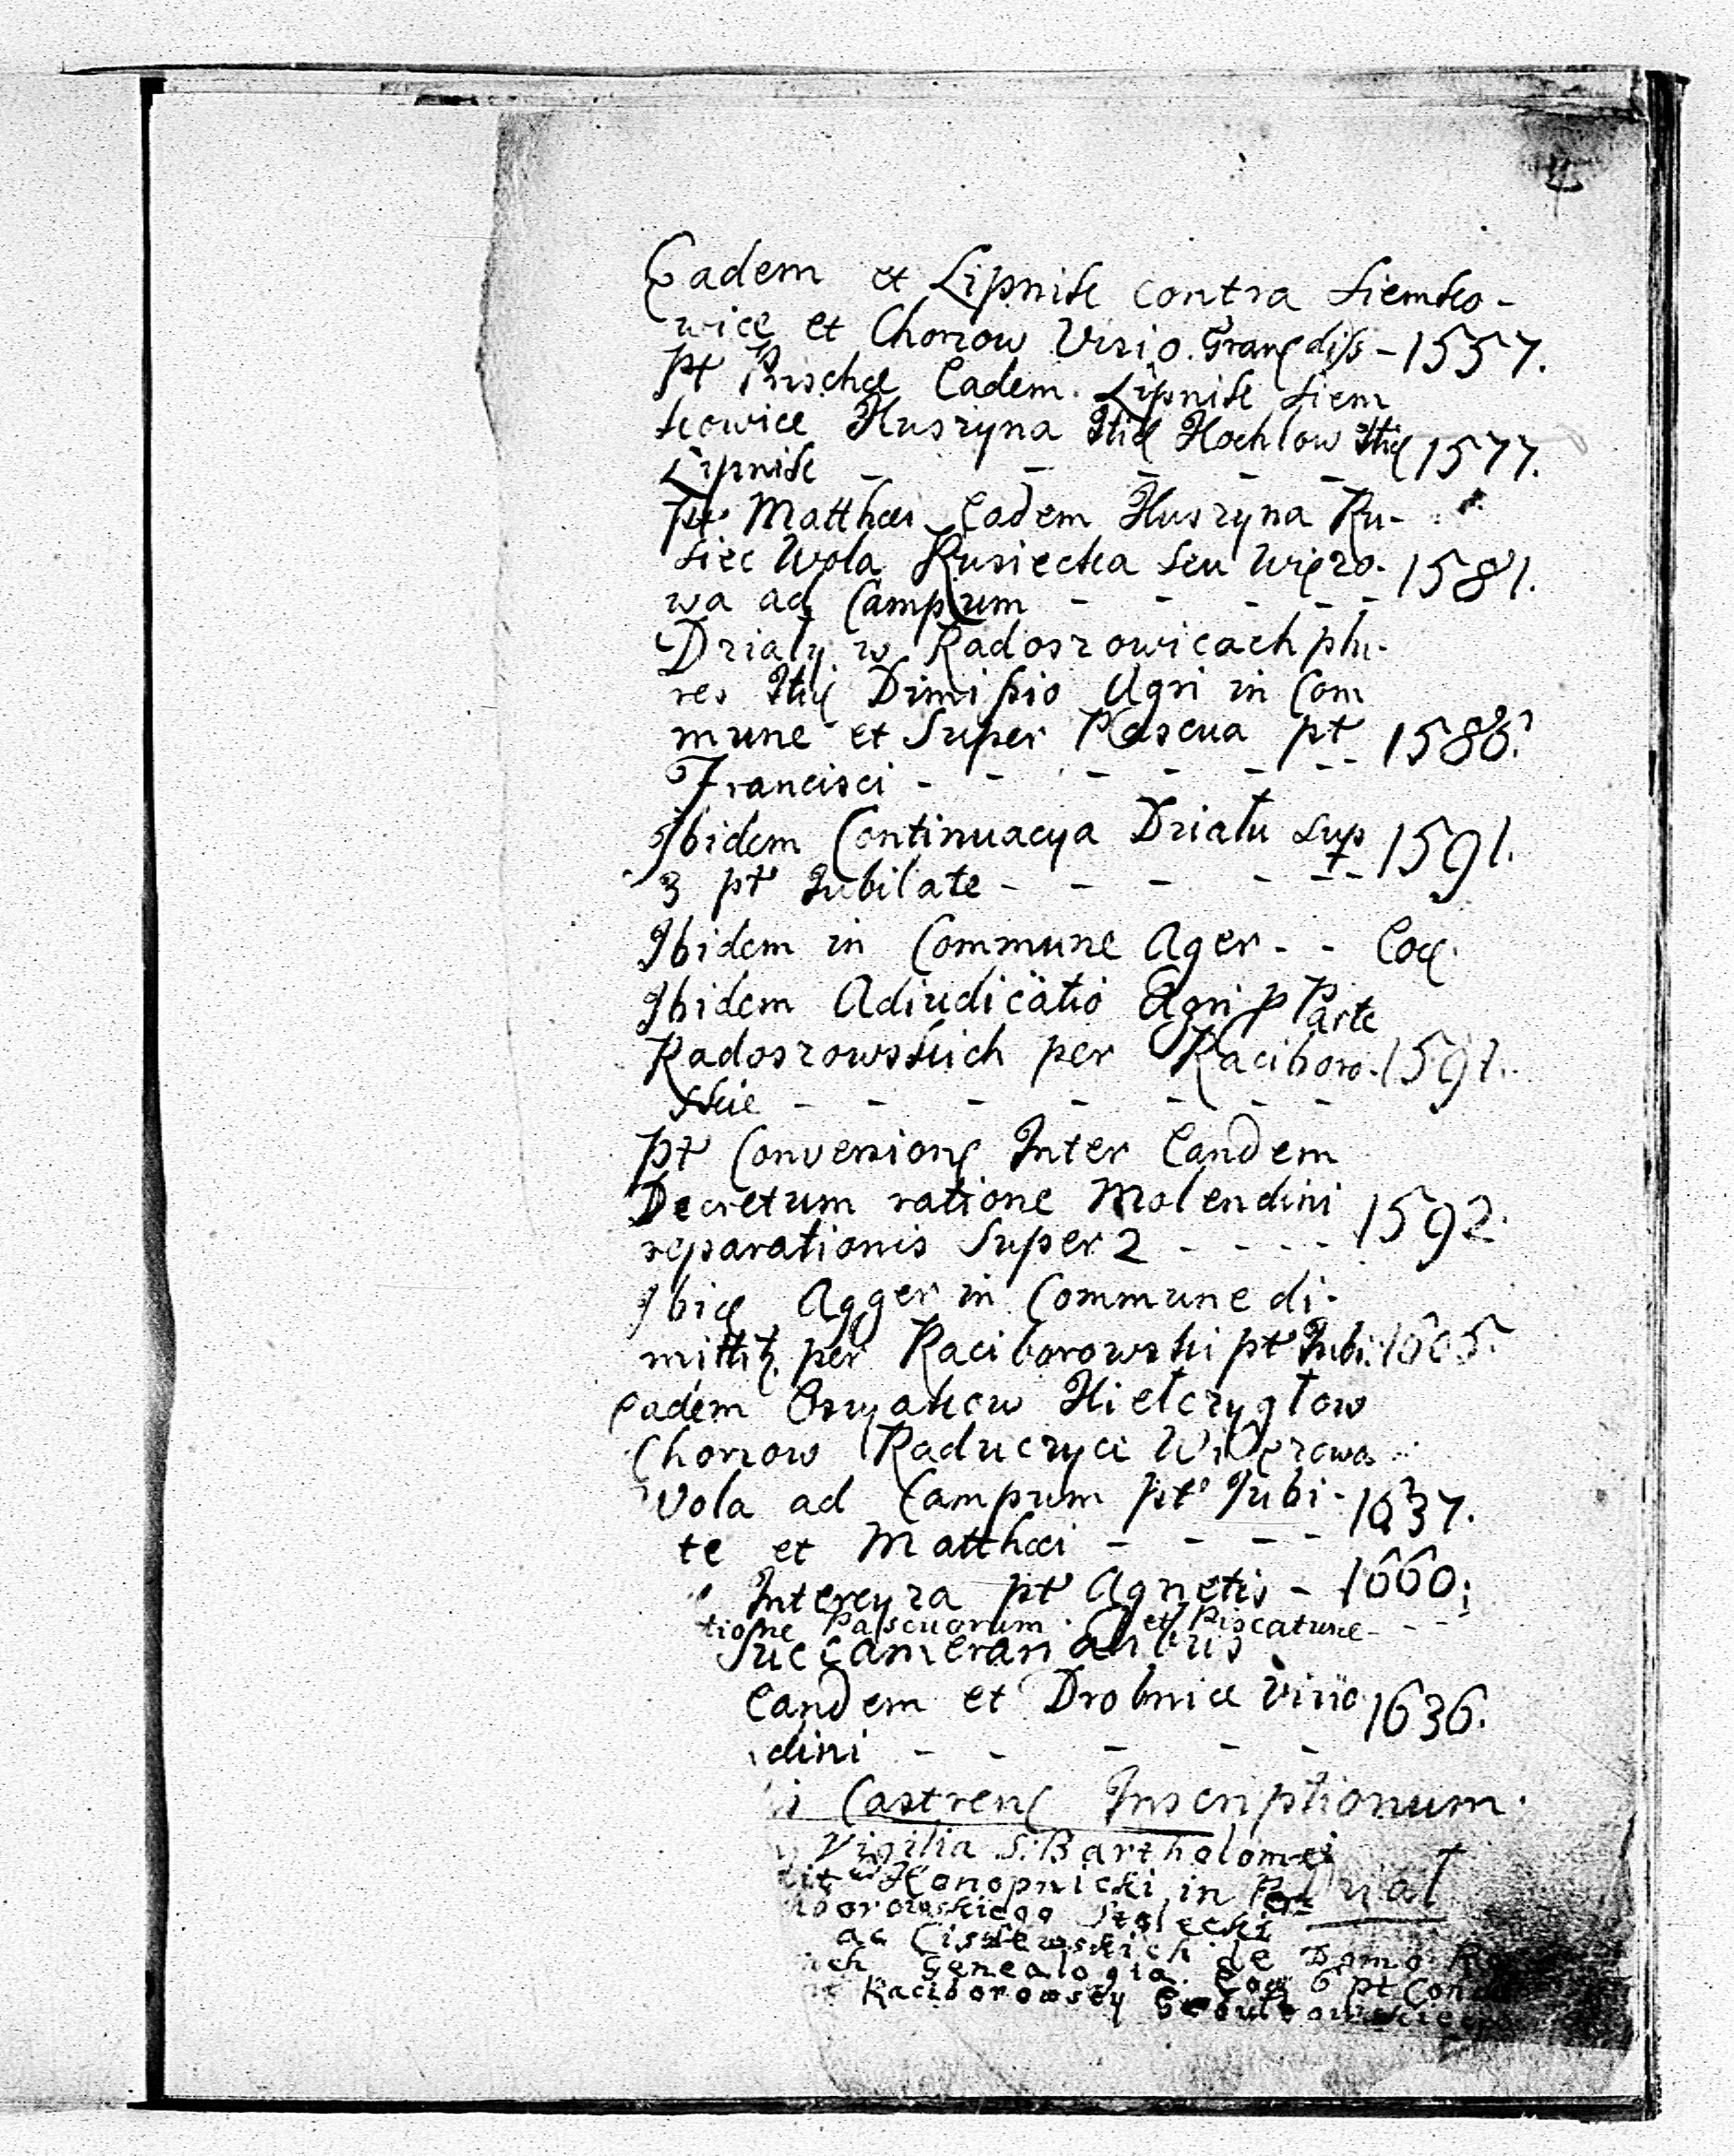 Eadem et Lipnik contra Siemko-
wice et Chorzow Visio. Granę diss - 1557.
pt Paschæ Eadem. Lipnik Siem
kowice Kuszyna Itid Kochlow Itid 1577.
Lipnik - - - - -
pt Matthæi Eadem Kuszyna Ru-
siec Wola Rusiecka seu Więzo- 1581.
wa ad Campum - - - - -
Działy w Radoszowicach plu-
res Itid Dimissio Agri in Com
mune et Super Pascua pt 1586.
Francisci - - - - - - -
Ibidem Continuacya Działu sup 1591.
3 pt Jubilate - - - - - -
Ibidem in Commune Ager - - Eod.
Ibidem Adiudicatio Agri p Parte
Radoszowskich per Raciboro- 1591.
skie - - - - - - -
pt Conversionę Inter Eandem
Decretum ratione Molendini 1592.
reparationis Super 2 - - - -
Ibid Agger in Commune di-
mittit per Raciborowski pt Jubi: 1605.
Eadem Osyakow Kiełczygłow
Chorzow Raduczyce Więzowa
Wola ad Campum pt Jubi- 1637.
te et Matthæi - - - -
Intercyza pt Agnetis - 1660.
tione Pascuorum. et Piscaturæ - - -
Succamerarialibus
Eandem et Drobnice Visio 1636.
dini - - - - -
Castrenę Inscriptionum.
Vigilia S. Bartholomei
Konopnicki in
Genealogia. Eod 6 pt
Raciborowscy